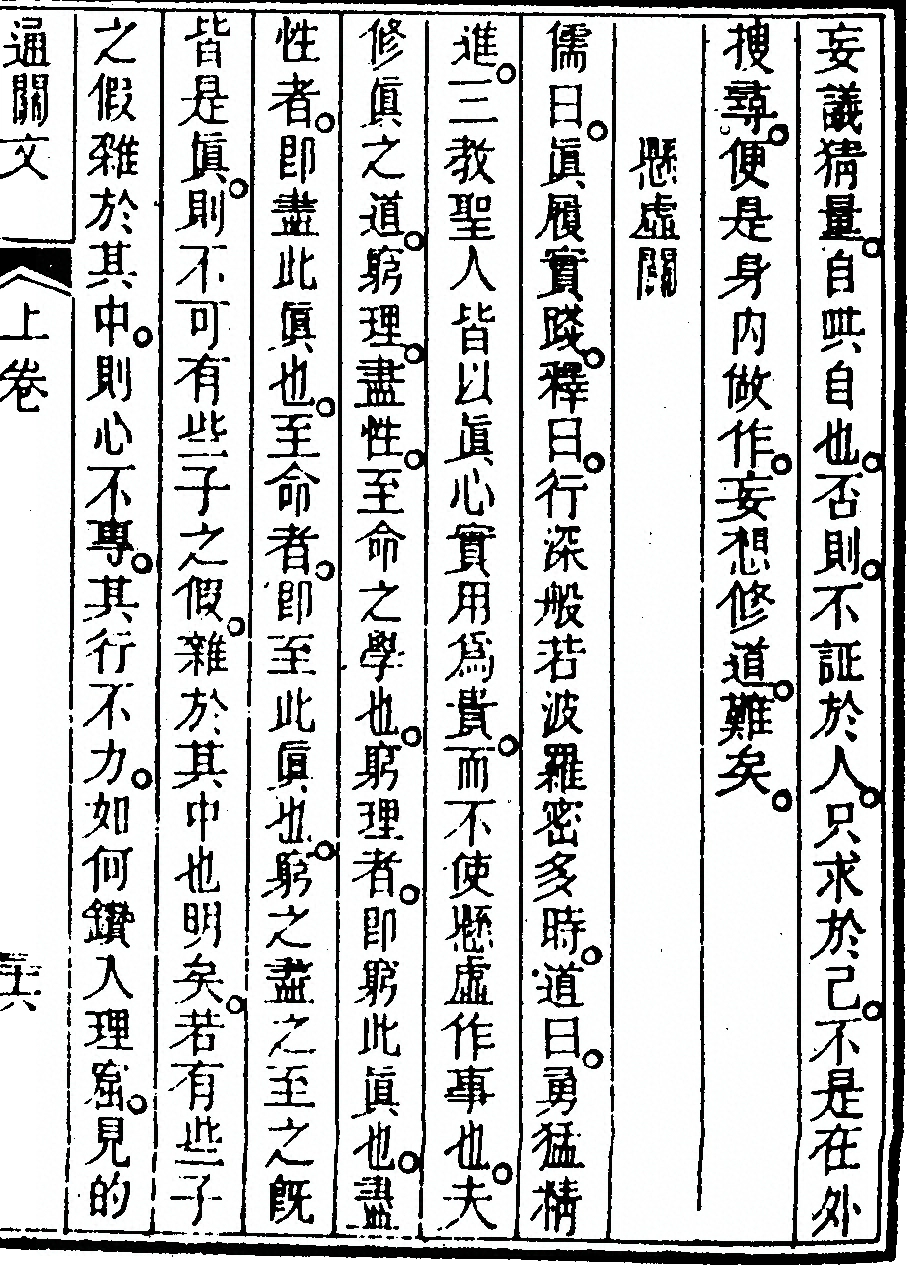 妄議猜量。自哄自也。否則。不証於人。只求於己。不是在外
搜尋。便是身內做作。妄想修道。難矣。
懸虛關
儒曰。眞履實踐。釋曰。行深般若波羅密多時。道曰。勇猛精
進。三教聖人皆以眞心實用爲貴。而不使懸虛作事也。夫
修眞之道。窮理。盡性。至命之學也。窮理者。卽窮此眞也。盡
性者。卽盡此眞也。至命者。卽至此眞也。窮之盡之至之旣
皆是眞。則不可有些子之假。雜於其中也明矣。若有些子
之假雜於其中。則心不專。其行不力。如何鑽入理窟。見的
通關文 上卷 三十六